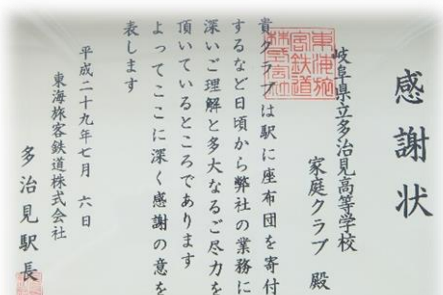 感謝状
岐阜県立多治見高等学校
家庭クラブ 殿
貴クラブは駅に座布団を寄付
するなど日頃から弊社の業務に
深いご理解と多大なるご尽力を
頂いているところであります
よってここに深く感謝の意を
表します
平成二十九年七月 六日
東海旅客鉄道株式会社
多治見駅長